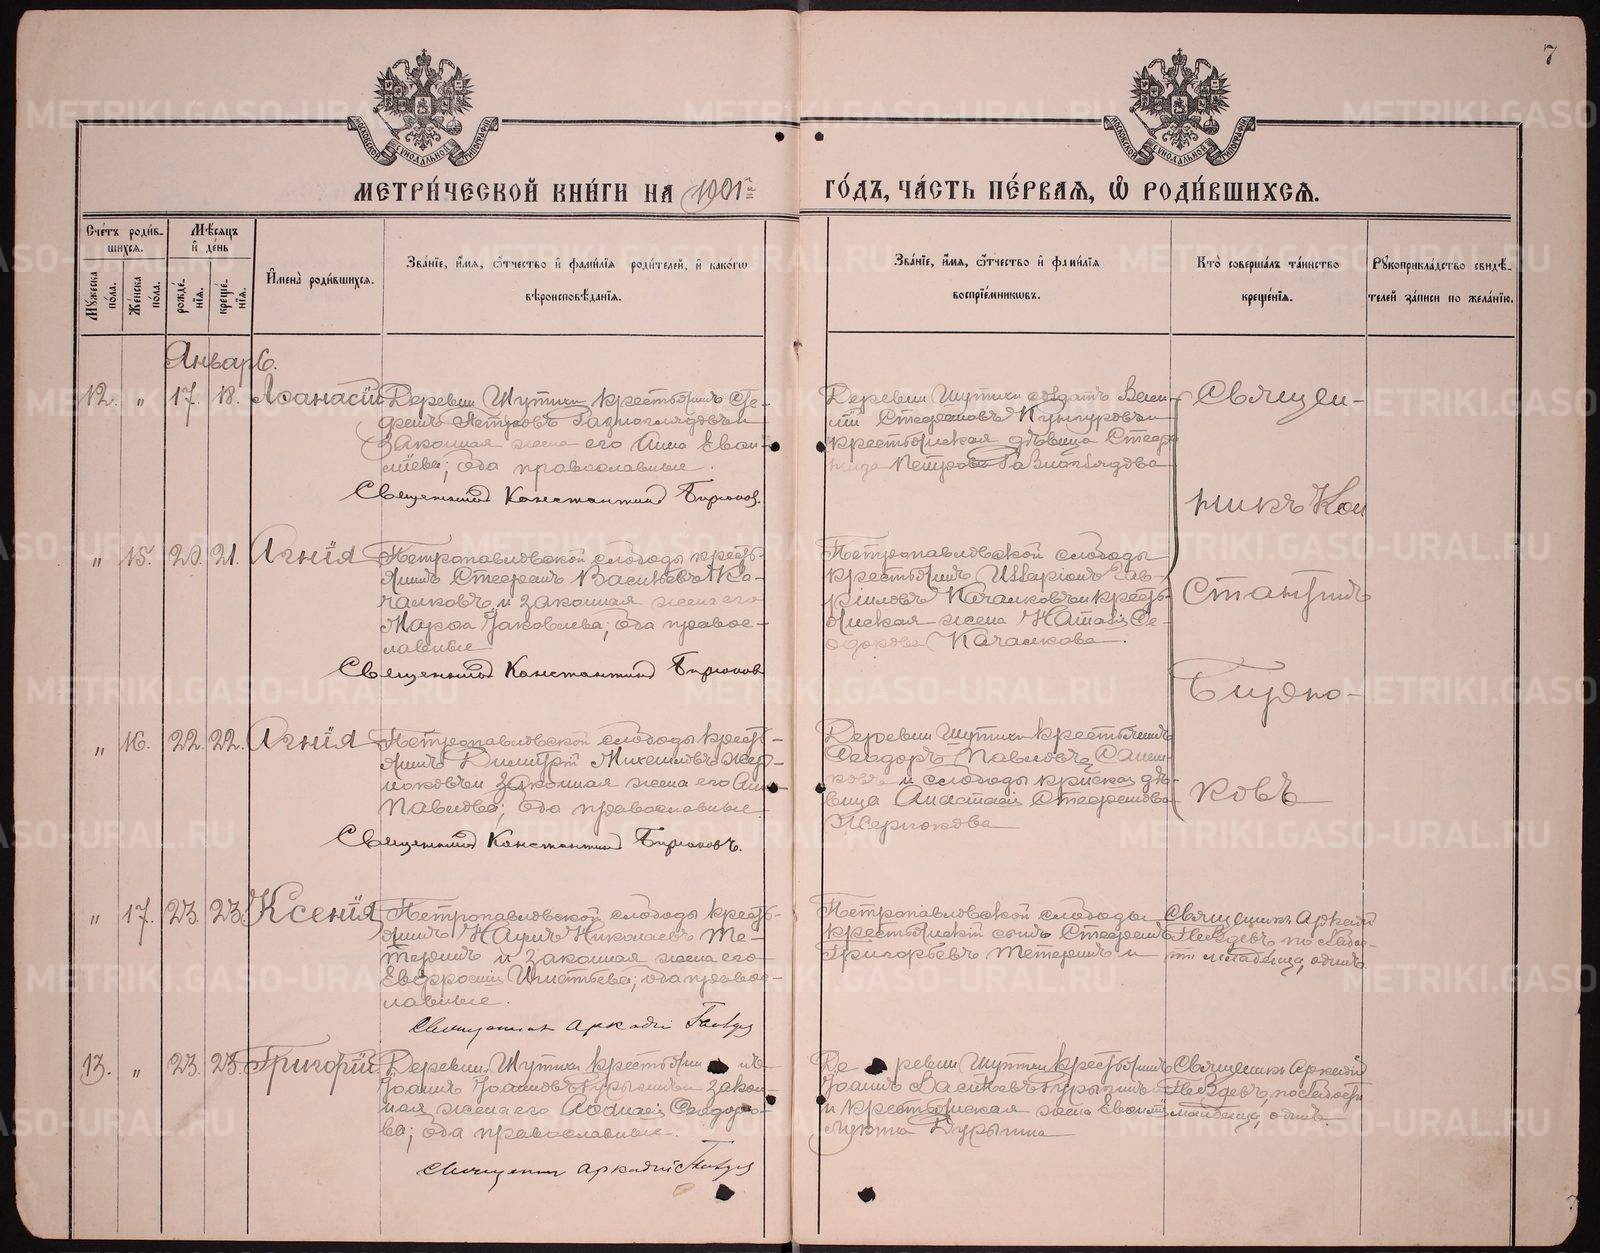 7
МЕТРИ́ЧЕСКОЙ КНИ́ГИ НА 1901й
ГО́ДЪ, ЧА́СТЬ ПЕ́РВАЯ, Ѿ РОДИ́ВШИХСЯ.
Сче́тъ роди́вшихся.
Мꙋжеска по́ла.
Же́нска по́ла.
Мѣ́сяцъ и҆ де́нь
рожде́нїя.
креще́нїя.
И҆мена̀ роди́вшихся.
Зва́нїе, и҆́мя, ѻ҆́тчество и҆ фами́лїя роди́телей, и҆ како́гѡ
вѣроисповѣ́данїя.
Зва́нїе, и҆́мя, ѻ҆́тчество и҆ фами́лїя
воспрїе́мниковъ.
Кто̀ соверша́лъ та́инство
креще́нїя.
Рꙋкоприкла́дство свидѣ́-
телей за́писи по жела́нїю.
Январь.
12. " 17. 18. Аѳанасій
Деревни Шутихи крестьянинъ Сте-
фанъ Петровъ
законная жена его Анна Еван-
; оба православные.
Священникъ Константинъ Бирюков.
Деревни Шутихи солдатъ
Стефановъ Кунгуровъ и
крестьянская дѣвица Стефа-
нида Петрова
Священ-
никъ Кон
стантинъ
Бирю-
ковъ
" 15. 20. 21. Агнія
Петропавловской слободы кресть-
янинъ Стефанъ Васильевъ Ка-
чалковъ и законная жена его
Марѳа Яковлева; оба право-
славные
Священникъ Константинъ Бирюков
Петропавловской слободы
крестьянинъ Илларіонъ Гав-
ріиловъ Качалковъ и кресть-
янская жена Наталія Ѳе-
Качалкова.
" 16. 22. 22. Агнія
Петропавловской слободы кресть-
янинъ Димитрій Михеиловъ Жер-
ноковъ и законная жена его Анна
Павлова; оба православные
Священникъ Константинъ Бирюковъ.
Деревни Шутихи крестьянинъ
Ѳеодоръ Павловъ
и слободы дѣ-
вица Анастасія Стефанова
Жернокова
" 17. 23. 23. Ксенія
Петропавловской слободы кресть-
янинъ Наумъ Николаевъ Те-
теринъ и законная жена его
Евфросинія Игнатьева; оба право-
славные.
Священник Аркадій Гвоздев
Петропавловской слободы
крестьянскій сынъ Стефанъ
Григорьевъ Тетеринъ и
Священникъ Аркадій
Гвоздевъ по слабос-
ти младенца, одинъ.
13. " 23. 23. Григорій
Деревни Шутихи крестьянинъ
Іоаннъ Іоанновъ и закон-
ная жена его Ѳеодоро-
ва; оба православные.
Священник Аркадій Гвоздев
Деревни Шутихи крестьянинъ
Іоаннъ Васильевъ
и крестьянская жена
Священникъ Аркадій
Гвоздевъ по слабости
младенца, одинъ.